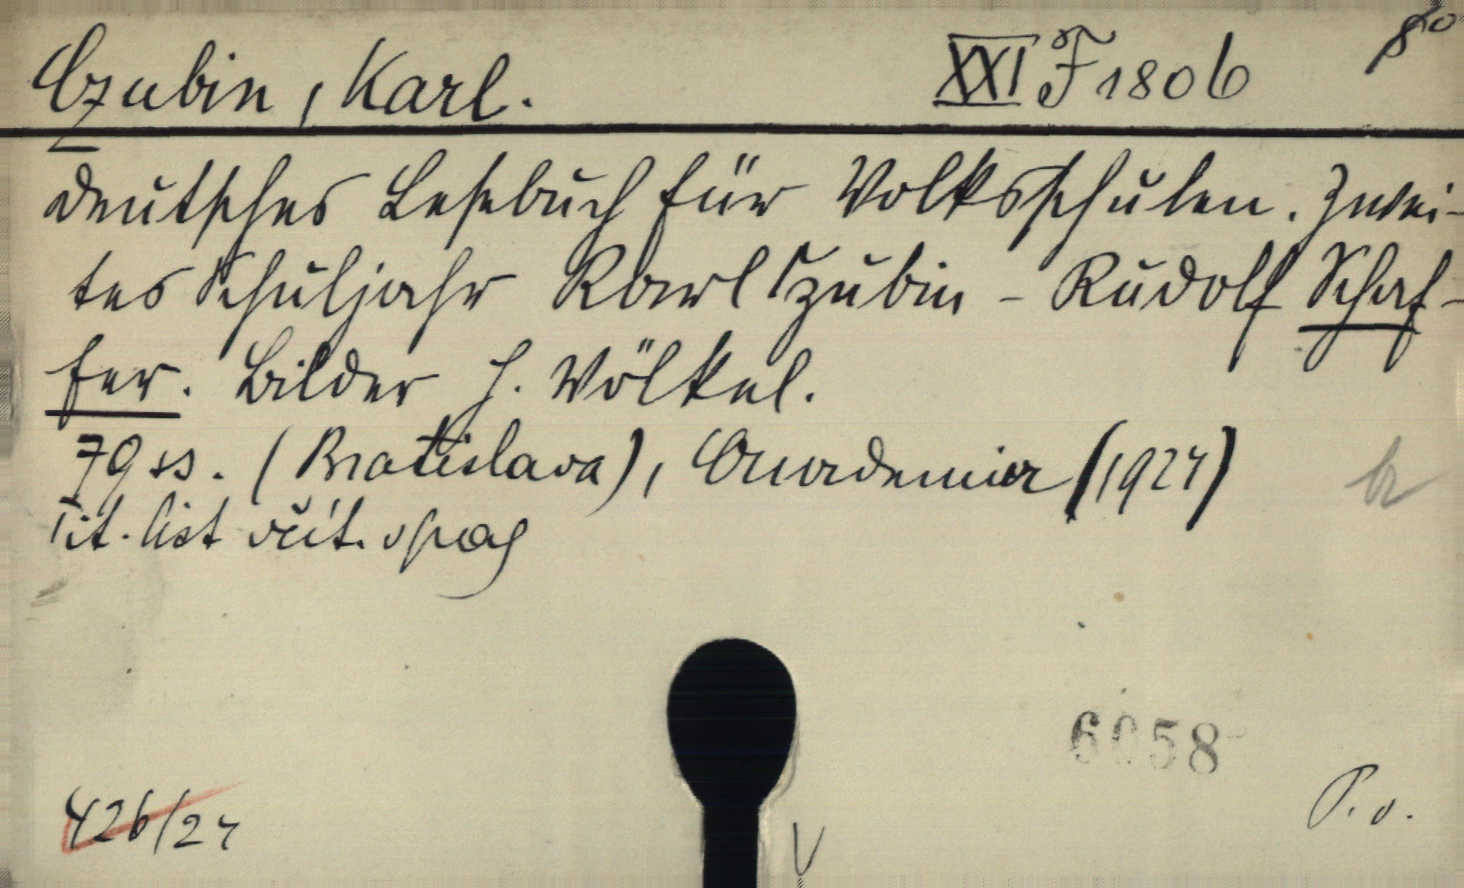 Czubin, Karl. XXI F 1806 8°
Deutsches Lesebuch für Volksschulen. Zwei-
tes Schuljahr Karl Czubin - Rudolf Schaf-
fer. Bilder H. Völkel.
79 ss. (Bratislava), Academia (1927)
Tit. list
6058
426/27
P. o.
V